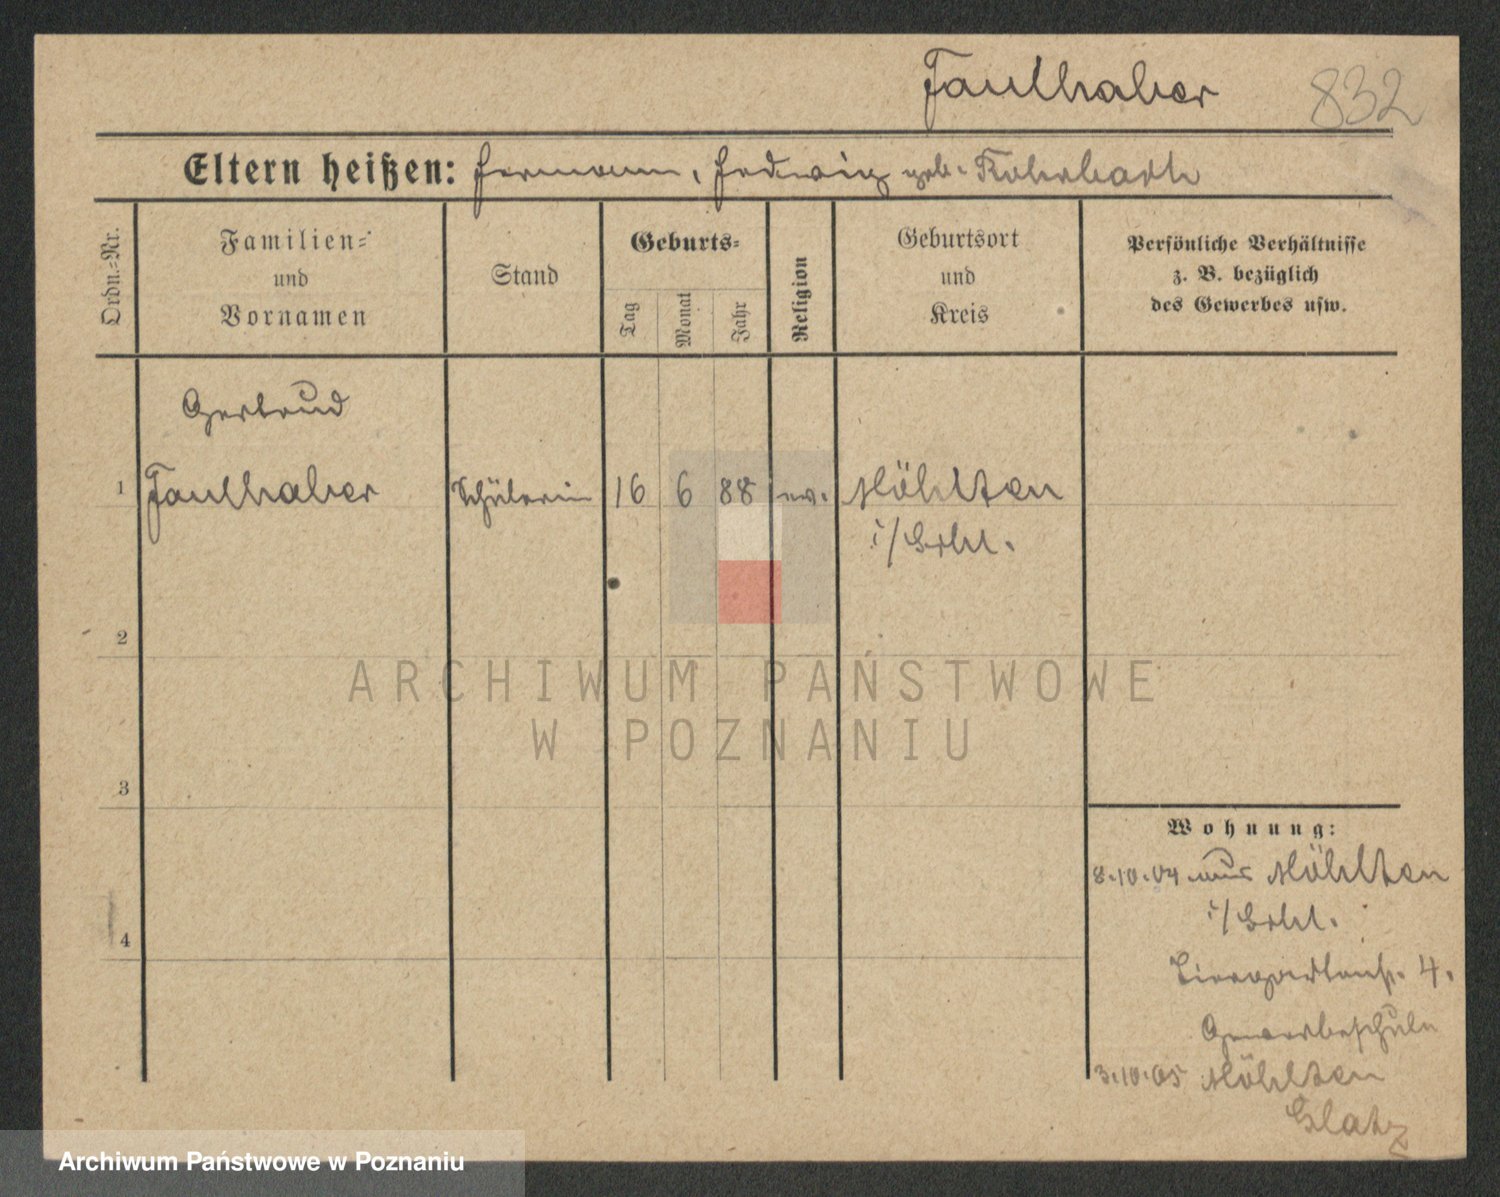 Faulhaber 832
Eltern heißen: Hermann, Hedwig geb. Rohrbach
Ordn.=Nr.
Familien=
und
Vornamen
Stand
Geburts=
Tag
Monat
Jahr
Religion
Geburtsort
und
Kreis
Persönliche Verhältnisse
z. B. bezüglich
des Gewerbes usw.
Gertrud
1 Faulhaber Schülerin 16 6 88 ev. Möhlten
i/Schl.
2
ARCHIWUM PAŃSTWOWE
W POZNANIU
3
Wohnung:
8.10.04 aus Möhlten
i/Schl.
4
Tiergartenstr. 4.
Gewerbeschule
3.10.05 Möhlten
Glatz
Archiwum Państwowe w Poznaniu